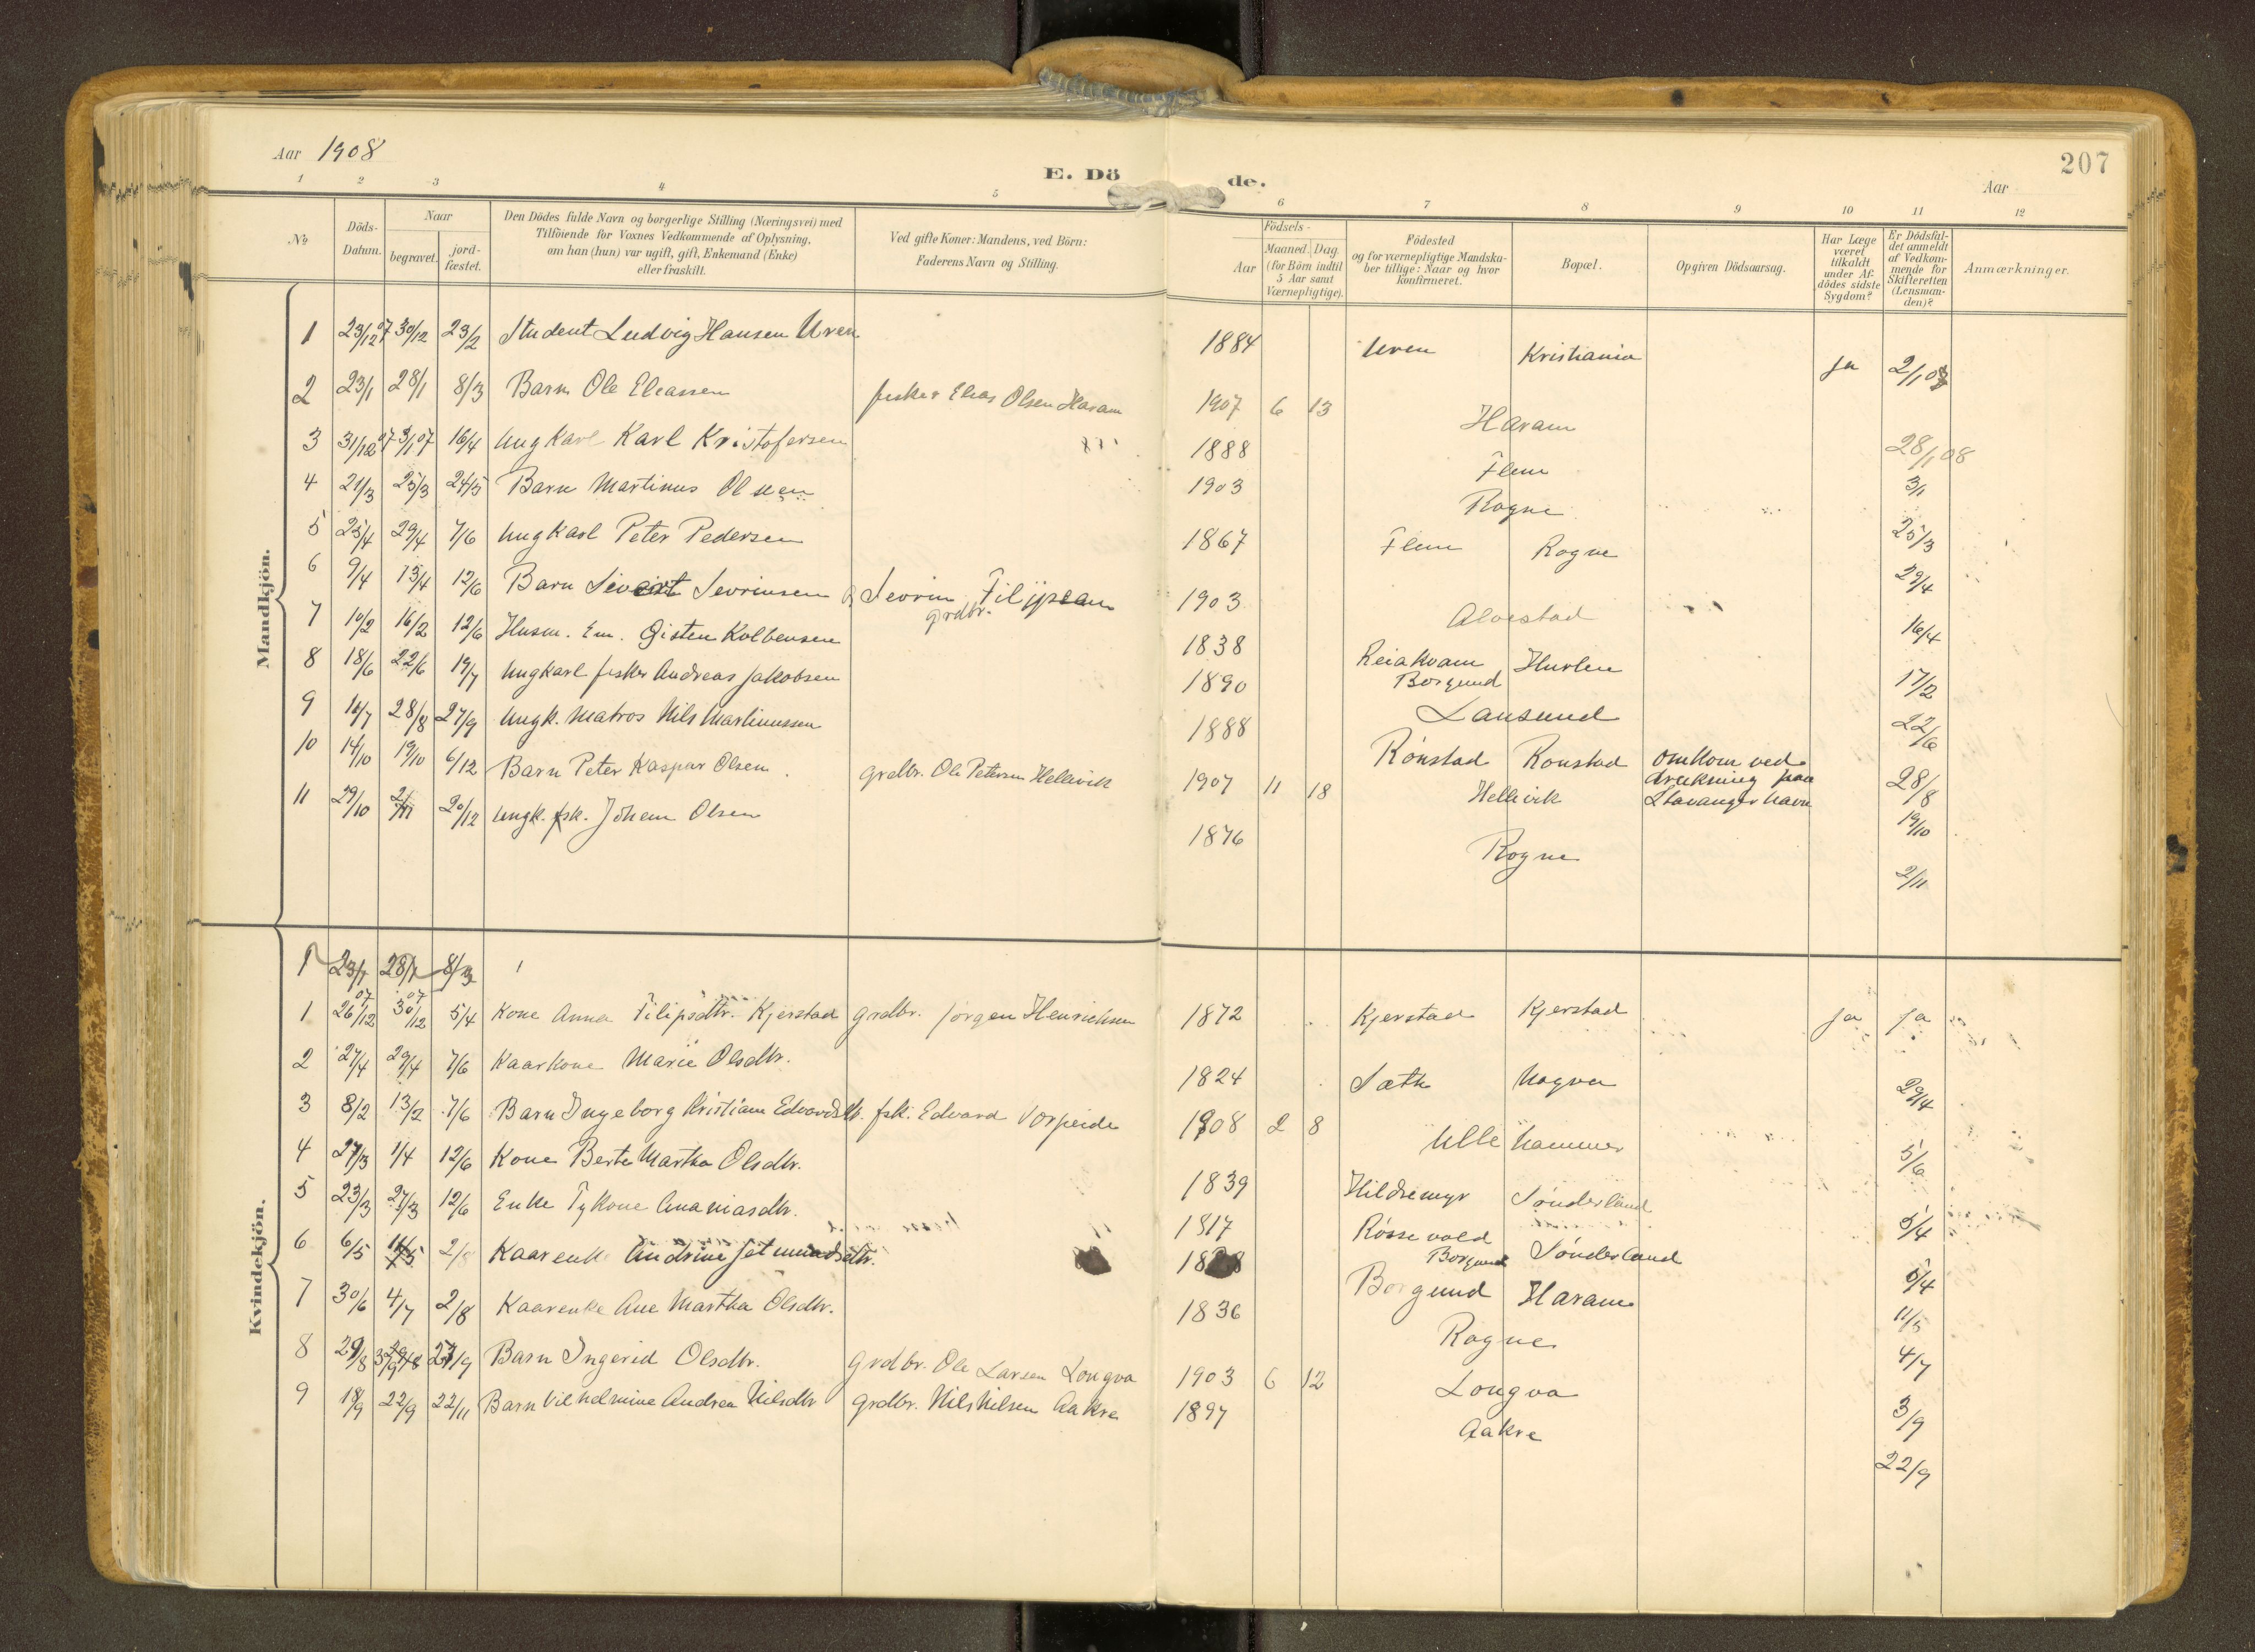 Aar 1908
E. Dö de.
207
Aar
1 2 3 4 5 6 7 8 9 10 11 12
№
Döds-Datum.
Naar
begravet. jord-fæstet.
Den Dödes fulde Navn og borgerlige Stilling (Næringsvei) med
Tilföiende for Voxnes Vedkommende af Oplysning,
om han (hun) var ugift, gift, Enkemand (Enke)
eller fraskilt.
Ved gifte Koner: Mandens, ved Börn:
Faderens Navn og Stilling.
Födsels-
Aar
Maaned. Dag.
(for Börn indtil
5 Aar samt
Værnepligtige).
Födested
og for værnepligtige Mandska-
ber tillige: Naar og hvor
konfirmeret.
Bopæl.
Opgiven Dödsaarsag.
Har Læge
været
tilkaldt
under Af-
dödes sidste
Sygdom?
Er Dödsfal-
det anmeldt
af Vedkom-
mende for
Skifteretten
(Lensman-
den)?
Anmærkninger.
Mandkjön.
1 23/12 07 30/12 23/2 Student Ludvig Hansen Uren 1884 Uren Kristiania ja 2/1 08
2 23/1 28/1 8/3 Barn Ole Eliassen fisker Elias Olsen Haram 1907 6 13 Haram 28/1 08
3 31/12 07 3/1 07 16/4 Ungkarl Karl Kristofersen 1888 Flem 3/1
4 21/3 25/3 24/5 Barn Martinus Olsen 1903 Rogne 25/3
5 25/4 29/4 7/6 Ungkarl Peter Pedersen 1867 Flem Rogne 29/4
6 9/4 15/4 12/6 Barn Sivert Sevrinsen Sevrin Filipsen grdbr. 1903 Alvestad 16/4
7 10/2 16/2 12/6 Husm. Em. Gisten Kolbensen 1838 Reiakvam Borgund Hurlen 17/2
8 18/6 22/6 19/7 Ungkarl fisker Andreas Jakobsen 1890 Lausund 22/6
9 16/7 28/8 27/9 Ungk. Matros Nils Martinussen 1888 Rönstad Ronstad omkom ved
drukning paa
Stavanger havn 28/8
10 14/10 19/10 6/12 Barn Peter Kaspar Olsen grdbr. Ole Petersen Hellevik 1907 11 18 Hellevik 19/10
11 29/10 2/11 20/12 Ungk. fsk. Johan Olsen 1876 Rogne 2/11
Kvindekjön.
1 23/1 28/1 8/3
1 26/12 07 30/12 07 5/4 Kone Anna Filipsdtr. Kjerstad grdbr. Jörgen Henriksen 1872 Kjerstad Kjerstad ja ja
2 27/4 29/4 7/6 Kaarkone Marie Olsdtr. 1824 Sæth Uagva 29/4
3 8/2 13/2 7/6 Barn Ingeborg Kristiane Edvardsdtr. fsk. Edvard Vorpeide 1908 2 8 Ullahammer 5/6
4 27/3 1/4 12/6 Kone Berte Martha Olsdtr. 1839 Hildremyr Sönderland 5/4
5 23/3 27/3 12/6 Enke Sykone Ananiasdtr. 1817 Rössevold Borgund Sönderland 5/4
6 6/5 11/5 2/8 Kaarenke Andrine Jetmundsdtr. Borgund Haram 11/5
7 30/6 4/7 2/8 Kaarenke Ane Martha Olsdtr. 1836 Rogne 4/7
8 29/8 27/9 Barn Ingerid Olsdtr. grdbr. Ole Larsen Longva 1903 6 12 Longva 3/9
9 18/9 22/9 22/11 Barn Vilhelmine Andrea Nilsdtr grdbr. Nils Nilsen Aakre 1897 Aakre 22/9